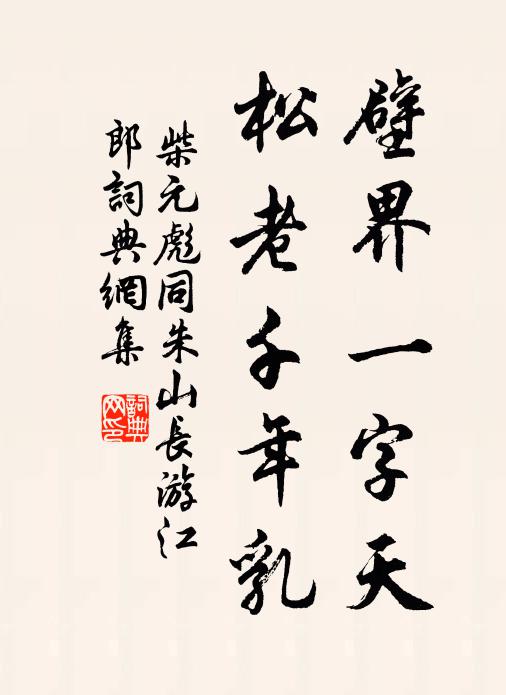 壁界一字天
松老千年乳
柴元彪同朱山長游江
郎詞典網集
詞典
网印